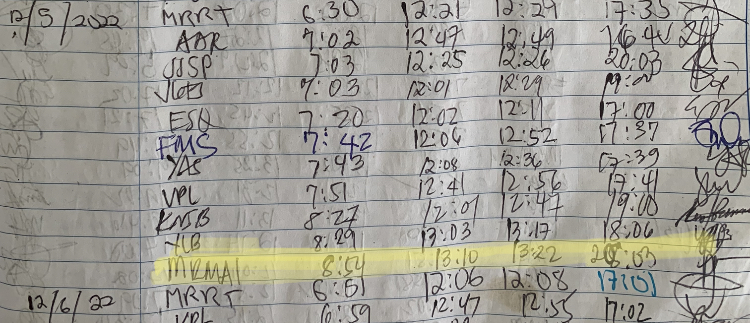 12/5/2022 MRRT 6:30 12:21 12:29 17:35
AAR 7:02 12:47 12:49
JSSP 7:03 12:25 12:26 20:03
7:03 12:01 12:29
ESQ 7:20 12:02 12:11 17:00
FMS 7:42 12:06 12:52 17:37
YAS 7:43 12:08 12:36 17:39
VPL 7:51 12:41 12:56 17:41
KNSB 8:27 12:01 12:47 19:00
8:29 13:03 13:17 18:06
MRMA 8:54 13:10 13:22 20:03
12/6/22 MRRT 6:51 12:06 12:08 17:01
6:59 12:47 12:55 17:02